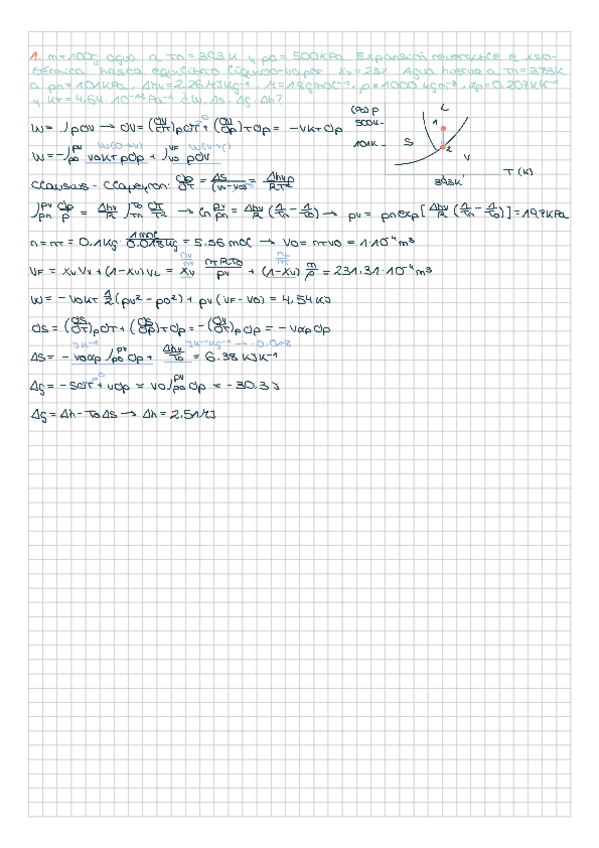 1. m=100g agua a T0=393K y p0=500kPa Expansión reversible e iso-
térmica hasta equilibrio líquido-vapor xv=23% Agua hierve a Tn=373K
a pn=101kPa, Δhv=2.26MJkg⁻¹ M=18gmol⁻¹, ρ=1000kgm⁻³, αp=0.207KK⁻¹
y kT=4.64·10⁻¹⁰Pa⁻¹ ¿W, ΔS, Δg, Δh?
(Pa) p
L
500K-
1
101K-
S
2
V
T (K)
393K
W=∫pdV → dV=(∂V/∂T)p dT+(∂V/∂p)T dp = -VkT dp
W=-∫p0^pv V0kT p dp + ∫V0^VF p dV
Clausius-Clapeyron: dp/dT = ΔS/(Vv-VS) = Δhv p/RT²
∫pn^pv dp/p = Δhv/R ∫Tn^T0 dT/T² → ln pv/pn = Δhv/R (1/Tn - 1/T0) → pv = pn exp[Δhv/R (1/Tn - 1/T0)] = 197kPa
n=nT = 0.1kg · 1mol/0.018kg = 5.56 mol → V0=nTv0 = 1·10⁻⁴m³
VF = xvVv+(1-xv)VL = xv nTRT0/pv + (1-xv) m/ρ = 231.31·10⁻⁴m³
W=-V0kT ½(pv²-p0²)+pv(VF-V0) = 4,54kJ
dS=(∂S/∂T)p dT+(∂S/∂p)T dp = -(∂V/∂T)p dp = -Vαp dp
ΔS=-V0αp∫p0^pv dp + Δhv/T0 = 6.38 kJK⁻¹
Δg=-SdT+Vdp = V0∫p0^pv dp = -30.3J
Δg=Δh-T0ΔS → Δh = 2.51MJ